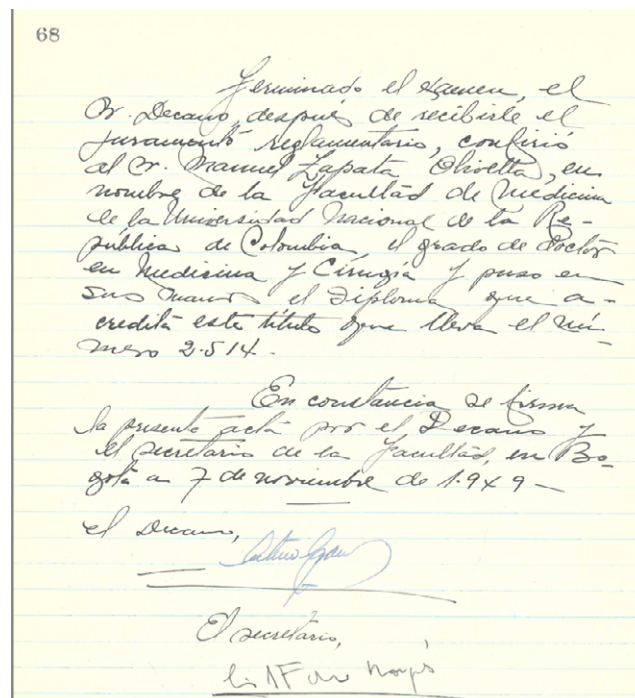 68
Terminado el examen, el
Sr. Decano, después de recibirle el
juramento reglamentario, confirió
al Sr. Manuel Zapata Olivella, en
nombre de la Facultad de Medicina
de la Universidad Nacional de la Re-
pública de Colombia, el grado de doctor
en Medicina y Cirugía y puso en
sus manos el Diploma que a-
credita este título que lleva el nú-
mero 2.514.
En constancia se firma
la presente acta por el Decano y
el secretario de la Facultad, en Bo-
gotá a 7 de noviembre de 1.949 —
El Decano,
El secretario,